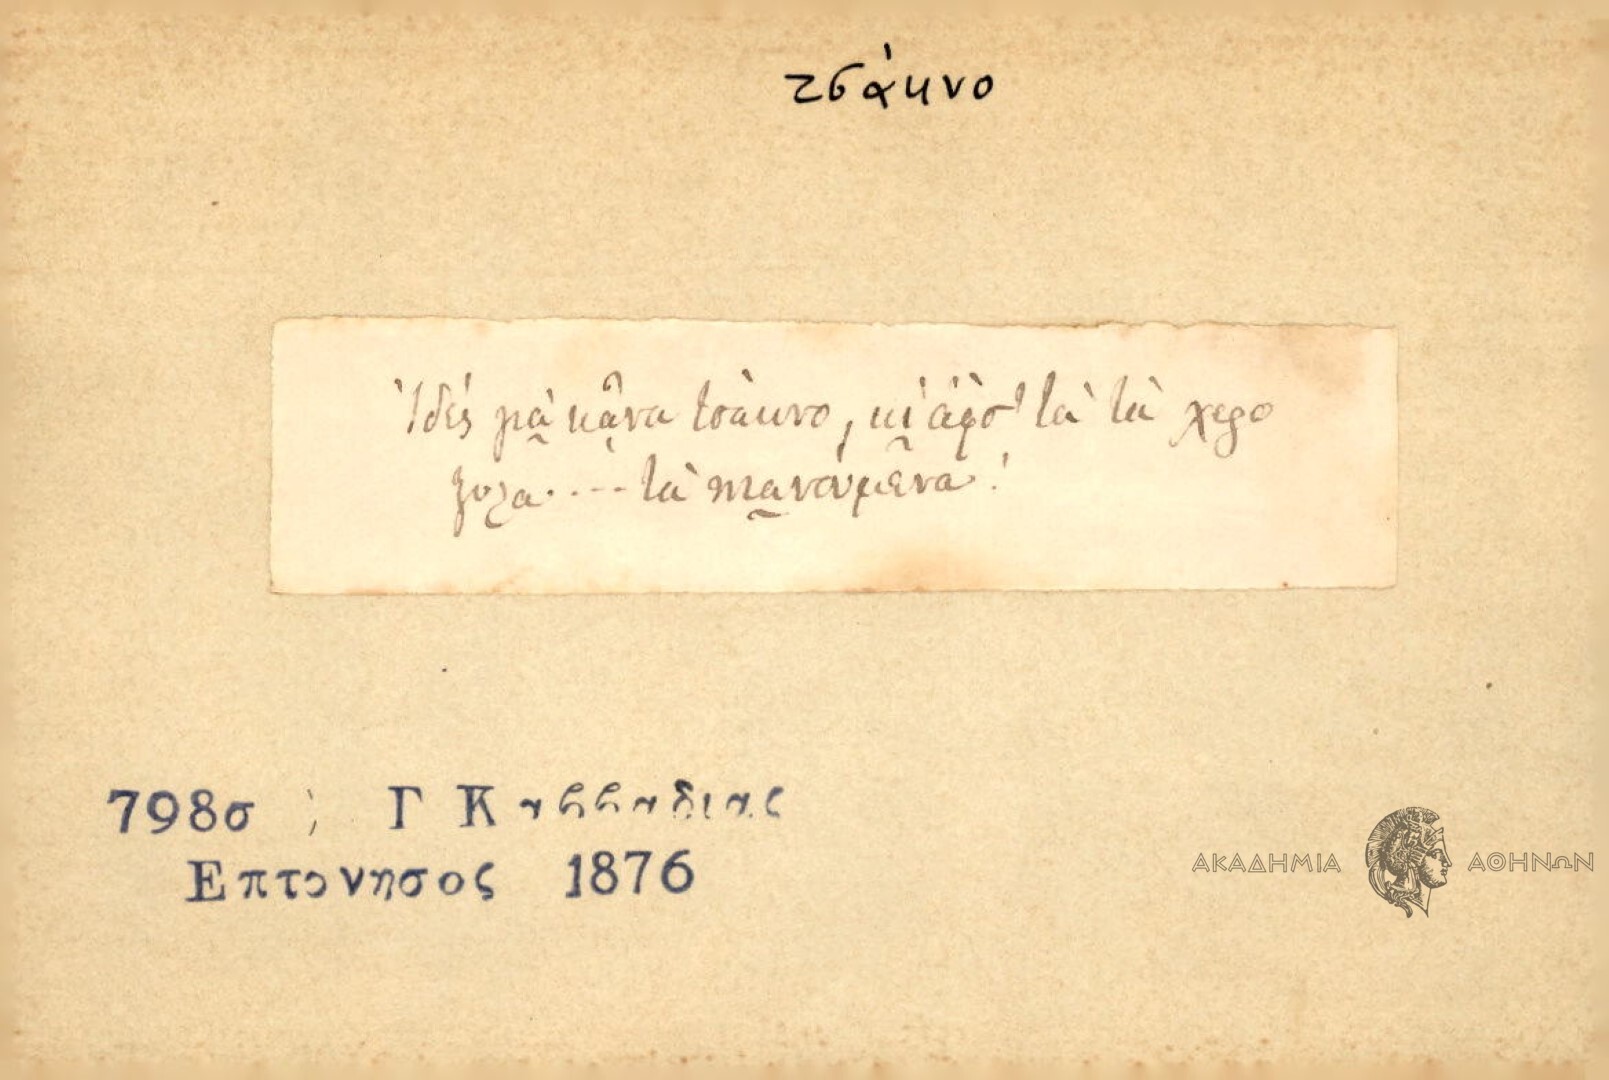 τσάκνο
Ἰδές μὰ κᾄνα τσάκνο, κι ἄφσ' τὰ τὰ χερο
ξυλα.... τὰ πιανούμενα!
798σ ; Γ Καββαδιας
Επτονησος 1876
ΑΚΑΔΗΜΙΑ ΑΘΗΝΩΝ